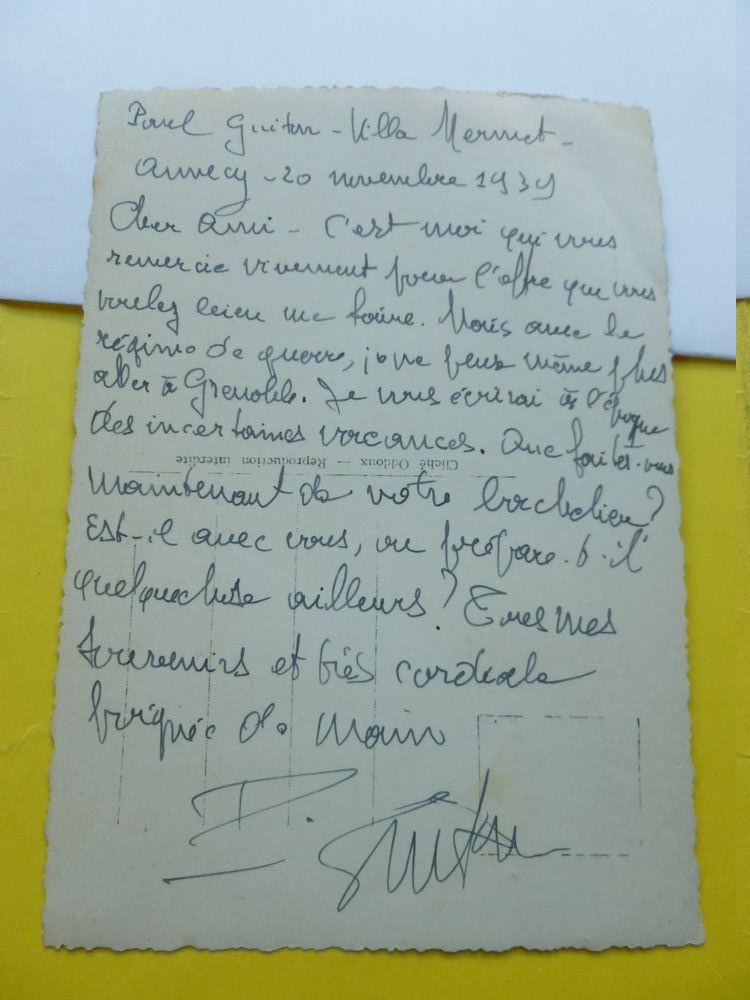 Paul Guiton - Villa Mermet -
Annecy - 20 novembre 1939
Cher Ami - C'est moi qui vous
remercie vivement pour l'offre que vous
voulez bien me faire. Mais avec le
régime de guerre, je ne peux même plus
aller à Grenoble. Je vous écrirai à l'époque
des incertaines vacances. Que faites-vous
Cliché Oddoux — Reproduction interdite
maintenant de votre bachelier?
Est-il avec vous, ou prépare-t-il
quelquechose ailleurs? Tous mes
souvenirs et très cordiale
poignée de main
P. Guiton